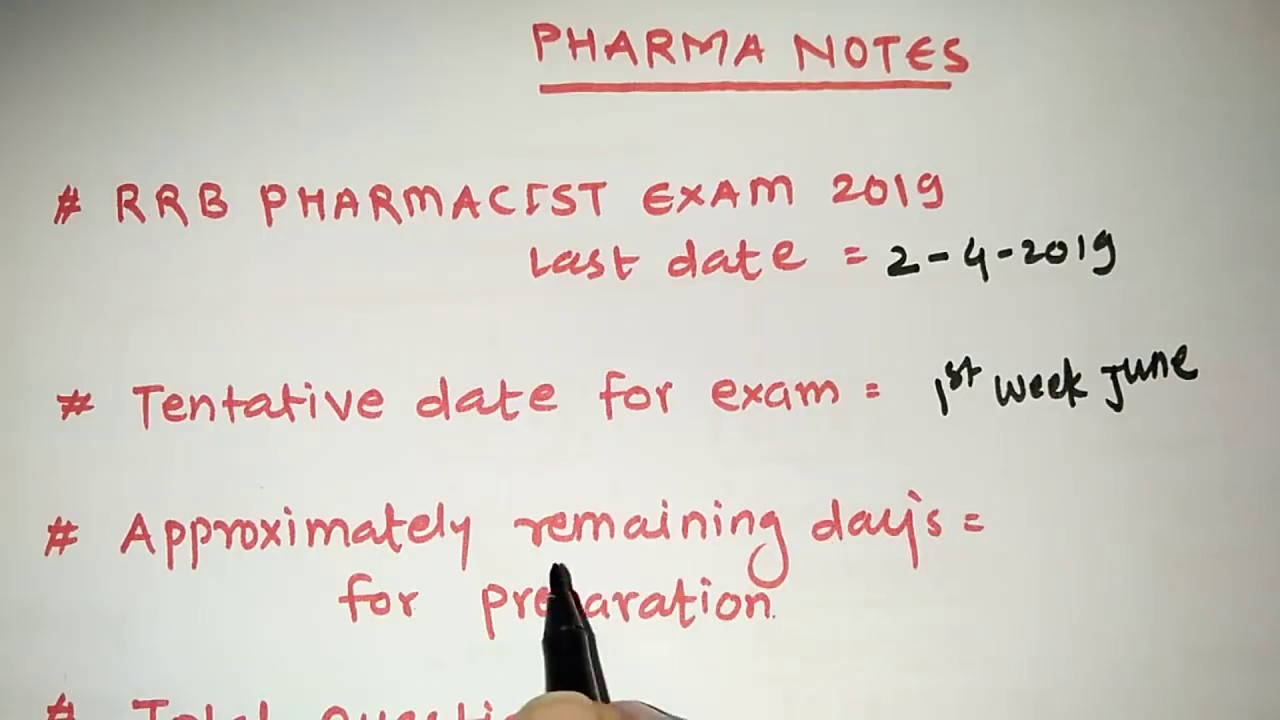 PHARMA NOTES
# RRB PHARMACIST EXAM 2019
Last date = 2-4-2019
# Tentative date for exam = 1st week June
# Approximately remaining day's =
for preparation.
# Total